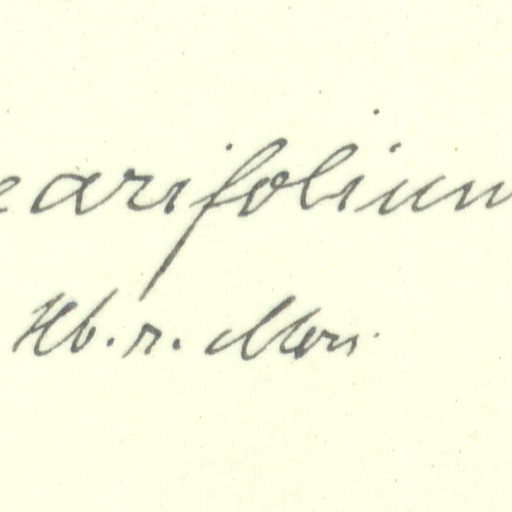 earifolium
Hb. r. Mon.